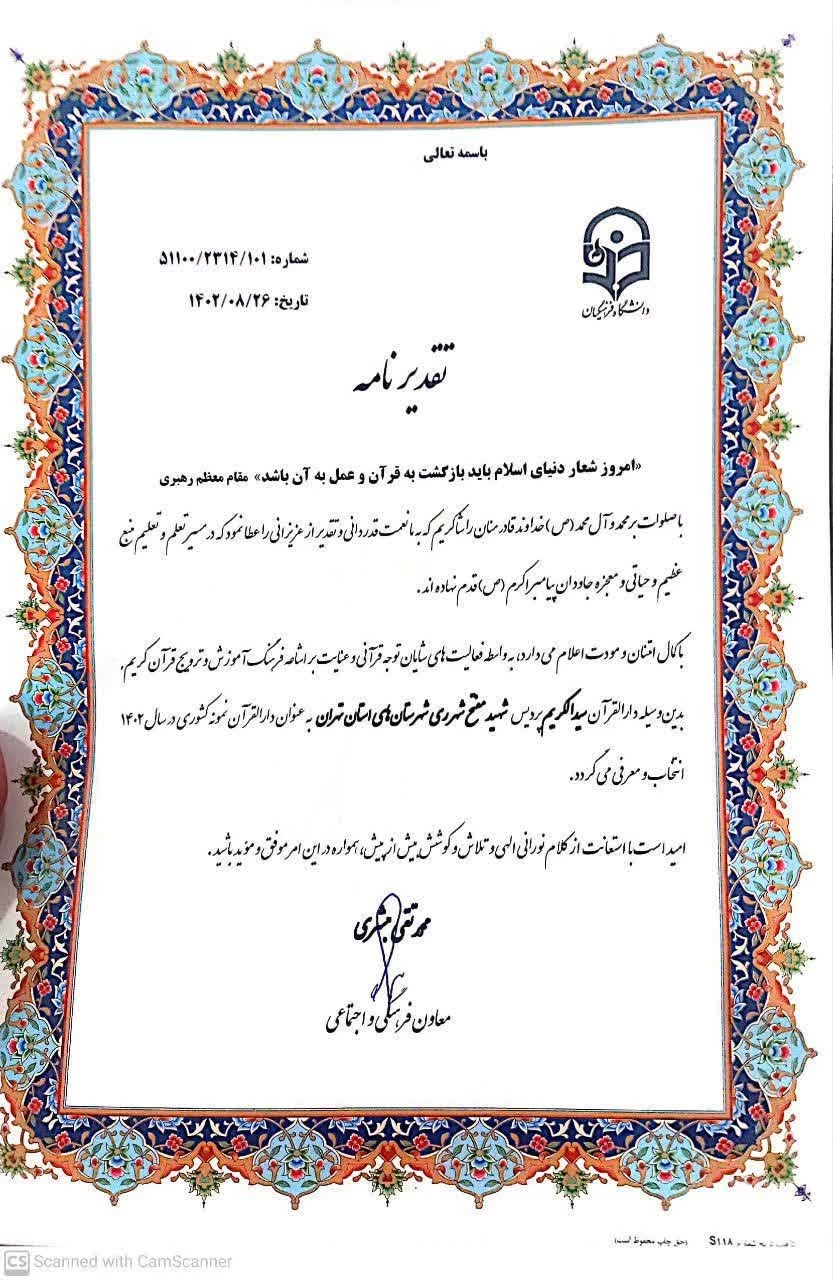 باسمه تعالی
دانشگاه فرهنگیان
شماره: ۵۱۱۰۰/۲۳۱۴/۱۰۱
تاریخ: ۱۴۰۲/۰۸/۲۶
تقدیرنامه
«امروز شعار دنیای اسلام باید بازگشت به قرآن و عمل به آن باشد» مقام معظم رهبری
با صلوات بر محمد و آل محمد (ص) خداوند قادر منان را شاکریم که به ما نعمت قدردانی و تقدیر از عزیزانی را عطا نمود که در مسیر تعلم و تعلیم منبع
عظیم و حیاتی و معجزه جاودان پیامبر اکرم (ص) قدم نهاده اند.
با کمال امتنان و مودت اعلام می دارد، به واسطه فعالیت های شایان توجه قرآنی و عنایت بر اشاعه فرهنگ آموزش و ترویج قرآن کریم،
بدین وسیله دارالقرآن سیدالکریم پردیس شهید مفتح شهرری شهرستان های استان تهران به عنوان دارالقرآن نمونه کشوری در سال ۱۴۰۲
انتخاب و معرفی می گردد.
امید است با استعانت از کلام نورانی الهی و تلاش و کوشش بیش از پیش، همواره در این امر موفق و مؤید باشید.
محمد تقی مبشری
معاون فرهنگی و اجتماعی
S۱۱۸ (حق چاپ محفوظ است)
CS Scanned with CamScanner